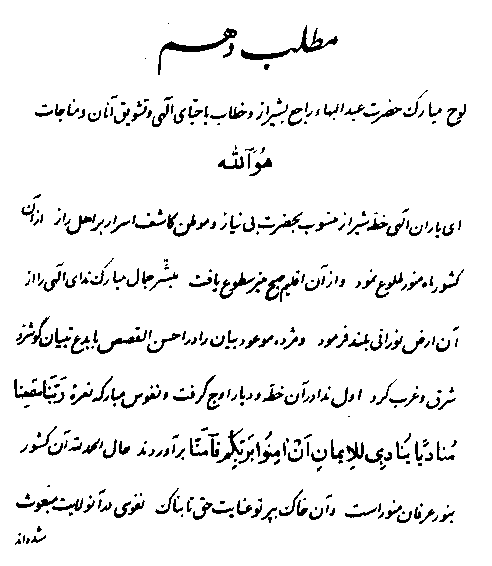 مطلب دهم
لوح مبارک حضرت عبدالبهاء راجع بشیراز و خطاب باحبای الهی و تشویق آنان و مناجات
هُوَ اللّه
ای یاران الهی خطّه شیراز منسوب بحضرت بی نیاز و موطن کاشف اسرار بر اهل راز از آن
کشور ماه منور طلوع نمود و از آن اقلیم صبح منیر سطوع یافت مبشّر جمال مبارک ندای الهی را از
آن ارض نورانی بلند فرمود و مژده موعود بیان را در احسن القصص بابدع تبیان گوشزد
شرق و غرب کرد اول ندا در آن خطّه و دیار اوج گرفت و نفوس مبارکه نعرهٔ رَبَّنَا سَمِعْنَا
مُنَادِیًا یُنَادِی لِلْإِیمَانِ أَنْ آمِنُوا بِرَبِّکُمْ فَآمَنَّا برآوردند حال الحمدلله آن کشور
بنور عرفان منور است و آن خاک بپرتو عنایت حق تابناک نفوسی در آنولایت مبعوث
شده‌اند